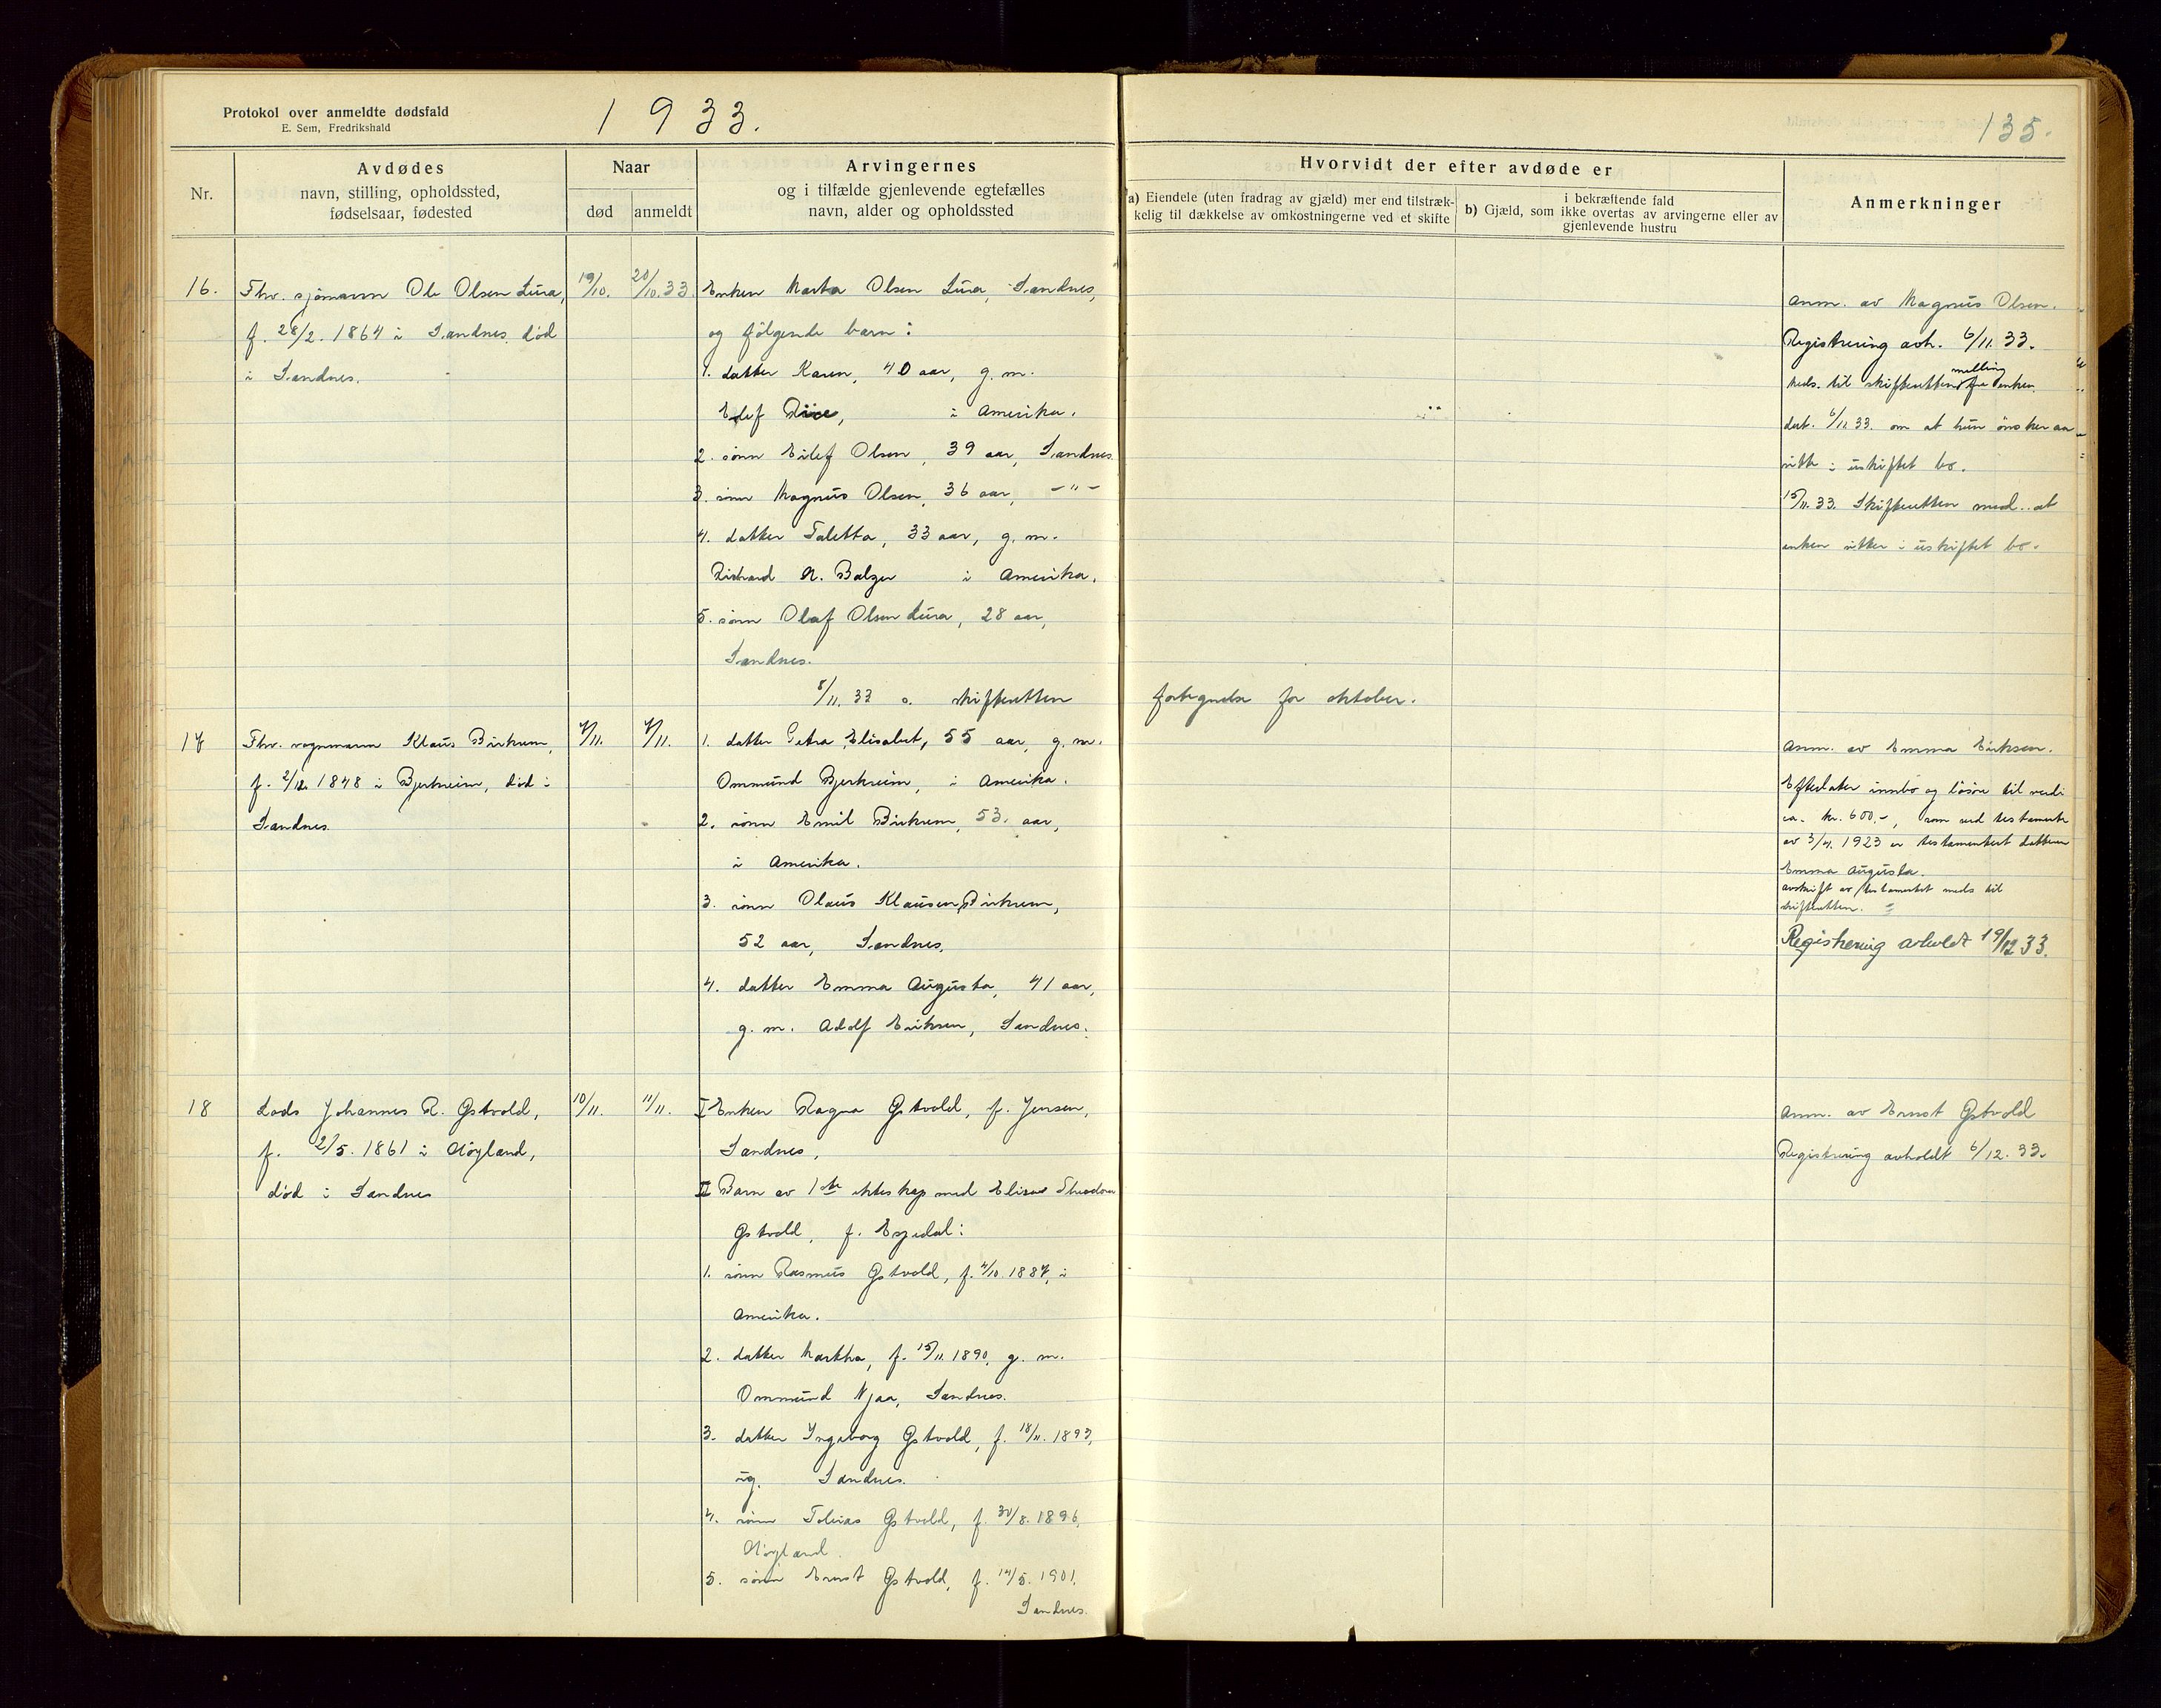 Protokol over anmeldte dødsfald
E. Sem, Fredrikshald
1933.
135.
Nr.
Avdødes
navn, stilling, opholdssted,
fødselsaar, fødested
Naar
død
anmeldt
Arvingernes
og i tilfælde gjenlevende egtefælles
navn, alder og opholdssted
Hvorvidt der efter avdøde er
a) Eiendele (uten fradrag av gjæld) mer end tilstræk-
kelig til dækkelse av omkostningerne ved et skifte
i bekræftende fald
b) Gjæld, som ikke overtas av arvingerne eller av
gjenlevende hustru
Anmerkninger
16.
Fhv. sjømann Ole Olsen Lura,
f. 28/2. 1864 i Sandnes, død
i Sandnes.
19/10.
20/10.33
Enken Marta Olsen Lura, Sandnes,
og følgende barn:
1. datter Karen, 40 aar, g. m.
Elef Rice, i Amerika.
2. sønn Eilef Olsen, 39 aar, Sandnes
3. sønn Magnus Olsen, 36 aar, -"-
4. datter Taletta, 33 aar, g. m.
Richard A. Balzer i Amerika.
5. sønn Olaf Olsen Lura, 28 aar,
Sandnes.
Anm. av Magnus Olsen.
Registrering avh. 6/11. 33.
Meds. til skifteretten melling fra enken
dat. 6/11 33. om at hun ønsker aa
sitte i uskiftet bo.
15/11. 33. Skifteretten med. at
enken sitter i uskiftet bo.
8/11. 33 s. skifteretten fortegnelse for oktober.
17
Fhv. vognmann Klaus Birkrem,
f. 2/12. 1848 i Bjerkreim, død i
Sandnes.
7/11.
7/11.
1. datter Petra Elisabet, 55 aar, g. m.
Ommund Bjerkreim, i Amerika.
2. sønn Emil Birkrem, 53. aar,
i Amerika.
3. sønn Olaus Klausen Birkrem,
52 aar, Sandnes.
4. datter Emma Augusta, 41 aar,
g. m. Adolf Eriksen, Sandnes.
Anm. av Emma Eriksen.
Efterlater innbo og løsøre til verdi
ca. kr. 600.-, som ved testamente
av 3/4. 1923 er testamentert datteren
Emma Augusta.
avskrift av testamentet meds til
skifteretten.
Registrering avholdt 19/12 33.
18
Lods Johannes R. Gstvold,
f. 2/5. 1861 i Høyland,
død i Sandnes
10/11.
11/11.
I Enken Ragna Gstvold, f. Jensen,
Sandnes,
II Barn av 1ste ekteskap med Elisae Theodora
Gstvold, f. Espedal:
1. sønn Rasmus Gstvold, f. 4/10. 1887, i
Amerika.
2. datter Martha, f. 15/11. 1890, g. m.
Ommund Njaa, Sandnes.
3. datter Ingeborg Gstvold, f. 18/11. 1893,
ug. Sandnes.
4. sønn Tobias Gstvold, f. 30/8. 1896,
Høyland.
5. sønn Ernst Gstvold, f. 14/5. 1901.
Sandnes.
Anm. av Ernst Gstvold
Registrering avholdt 6/12. 33.